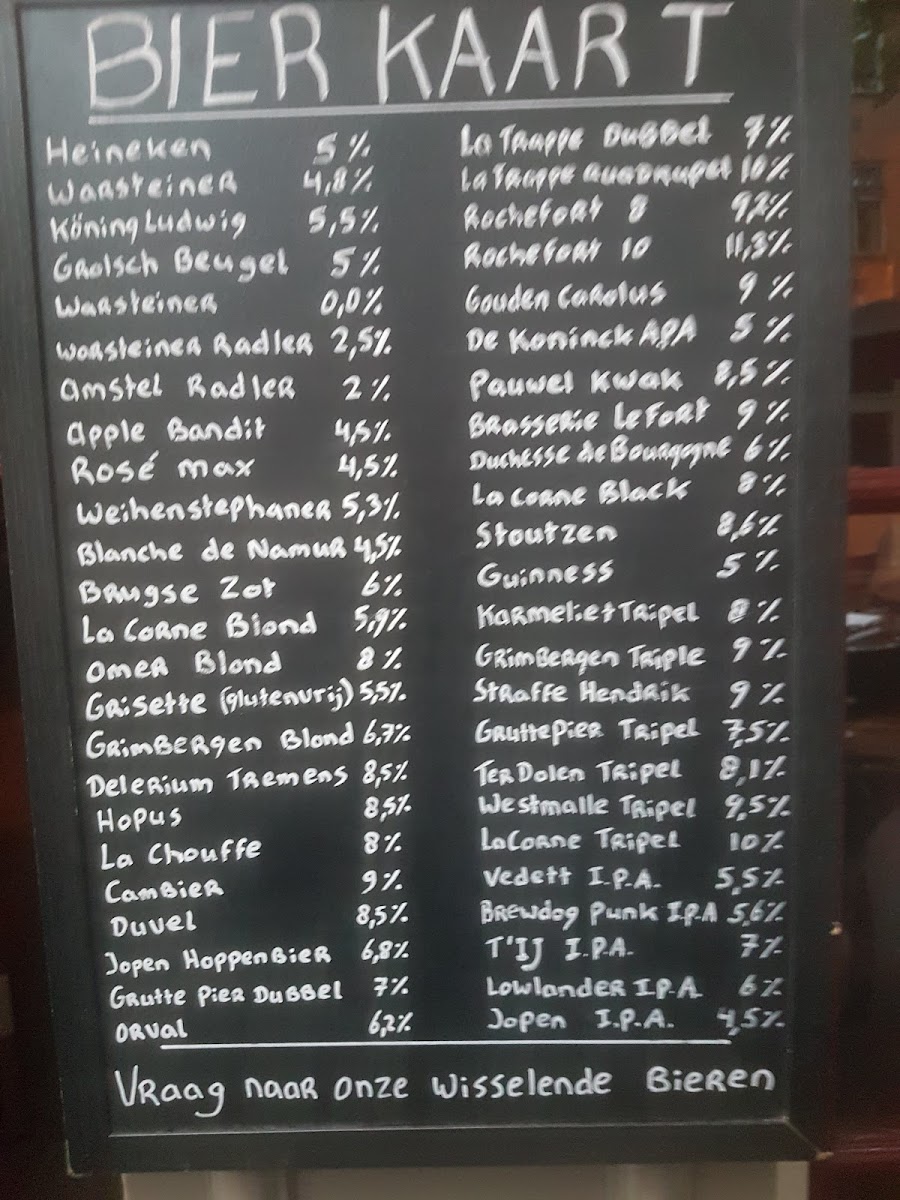 BIER KAART
Heineken 5%
Warsteiner 4,8%
Köning Ludwig 5,5%
Grolsch Beugel 5%
Warsteiner 0,0%
Warsteiner Radler 2,5%
Amstel Radler 2%
Apple Bandit 4,5%
Rosé max 4,5%
Weihenstephaner 5,3%
Blanche de Namur 4,5%
Brugse Zot 6%
La Corne Blond 5,9%
Omer Blond 8%
Grisette (glutenvrij) 5,5%
Grimbergen Blond 6,7%
Delerium Tremens 8,5%
Hopus 8,5%
La Chouffe 8%
Cambier 9%
Duvel 8,5%
Jopen Hoppenbier 6,8%
Grutte Pier Dubbel 7%
Orval 6,2%
La Trappe Dubbel 7%
La Trappe Quadrupel 10%
Rochefort 8 9,2%
Rochefort 10 11,3%
Gouden Carolus 9%
De Koninck APA 5%
Pauwel Kwak 8,5%
Brasserie LeFort 9%
Duchesse de Bourgogne 6%
La Corne Black 8%
Stoutzen 8,6%
Guinness 5%
Karmeliet Tripel 8%
Grimbergen Triple 9%
Straffe Hendrik 9%
Grutte Pier Tripel 7,5%
Ter Dolen Tripel 8,1%
Westmalle Tripel 9,5%
La Corne Tripel 10%
Vedett I.P.A. 5,5%
Brewdog Punk I.P.A 5,6%
T'IJ I.P.A. 7%
Lowlander I.P.A. 6%
Jopen I.P.A. 4,5%
Vraag naar onze wisselende Bieren